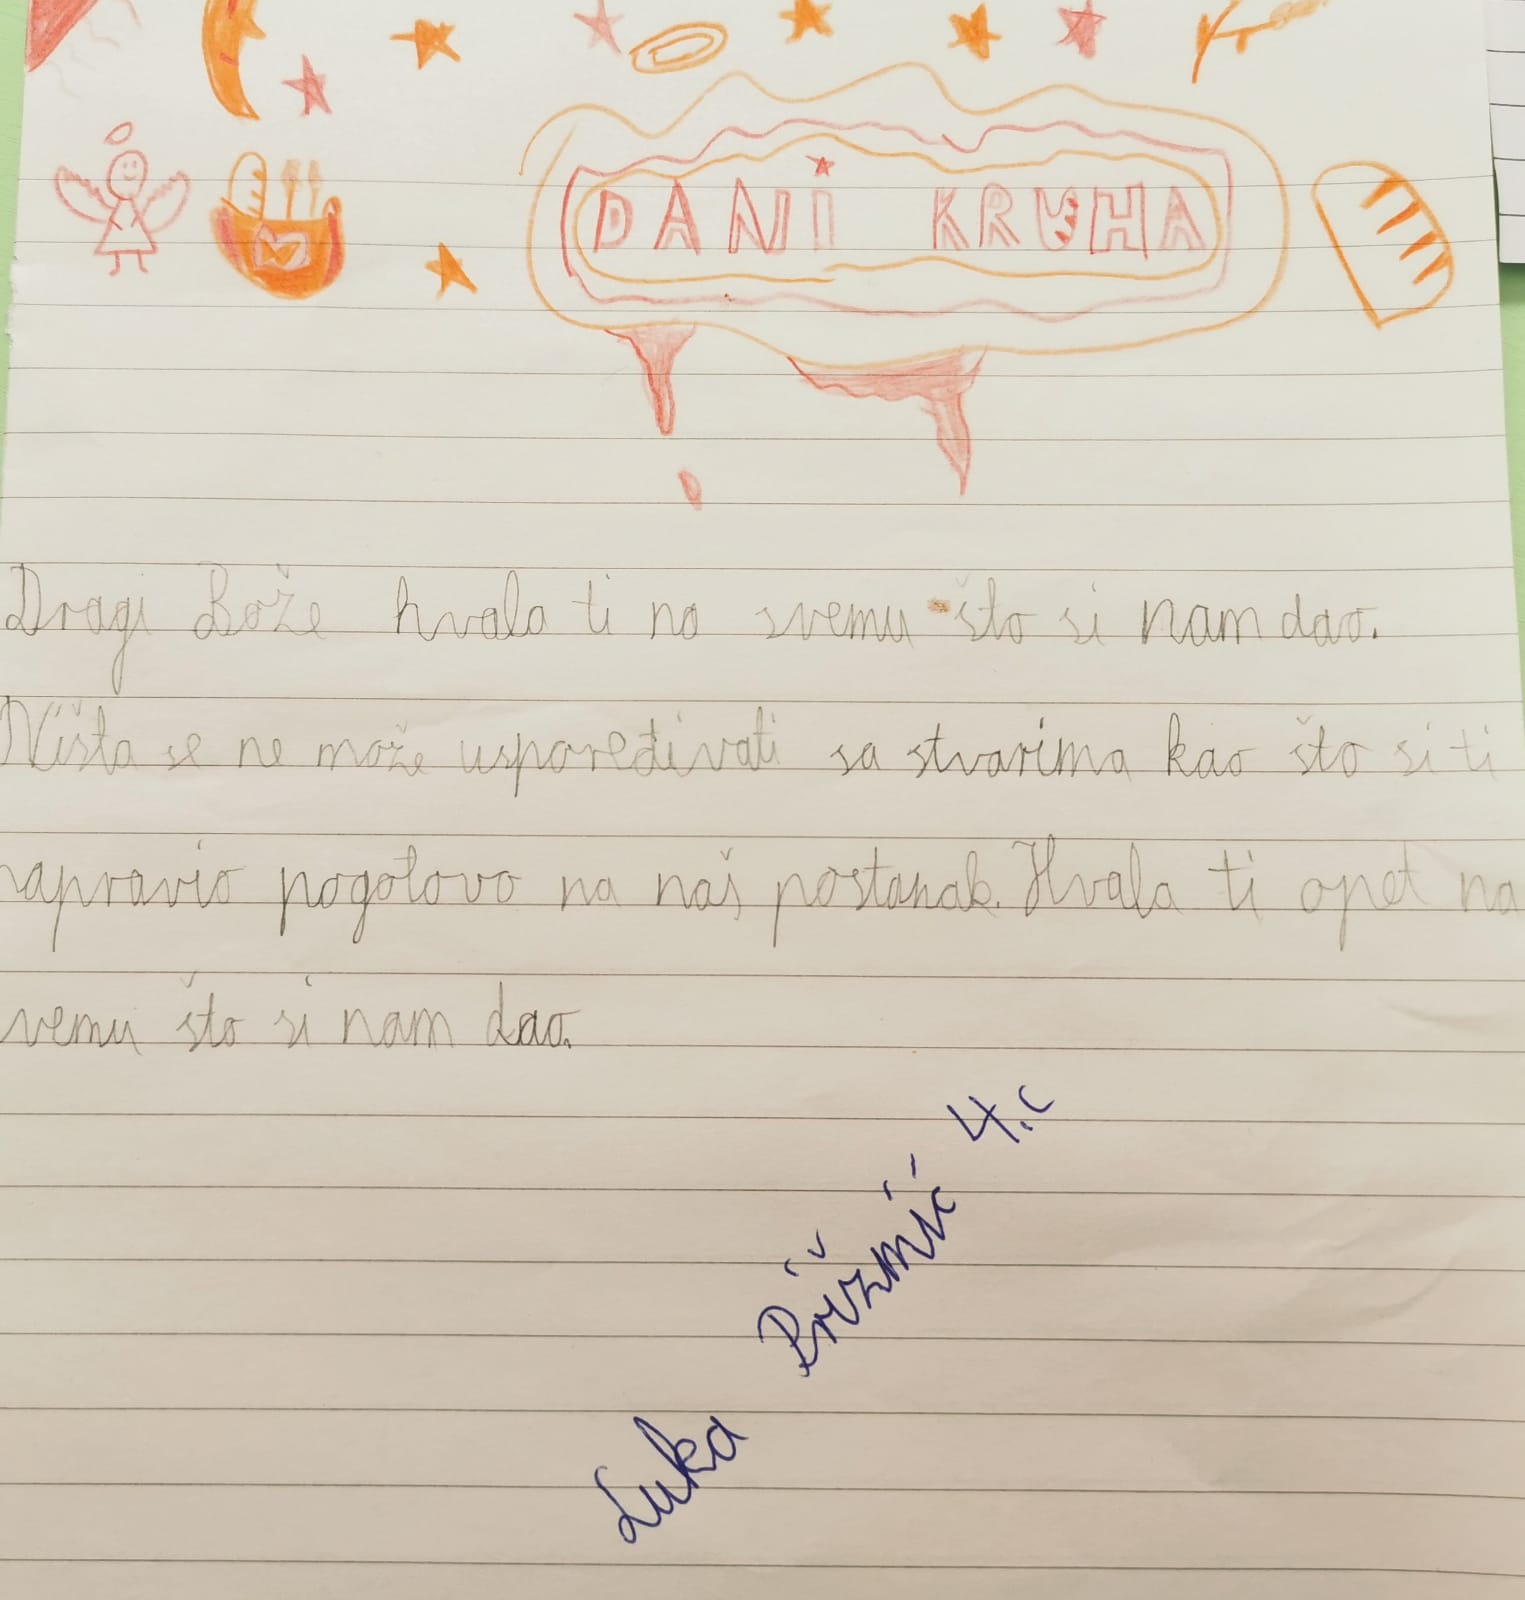 DANI KRUHA
Dragi Bože hvala ti na svemu što si nam dao.
Ništa se ne može uspoređivati sa stvarima kao što si ti
napravio pogotovo na naš postanak. Hvala ti opet na
svemu što si nam dao.
Luka Prižmić 4.c